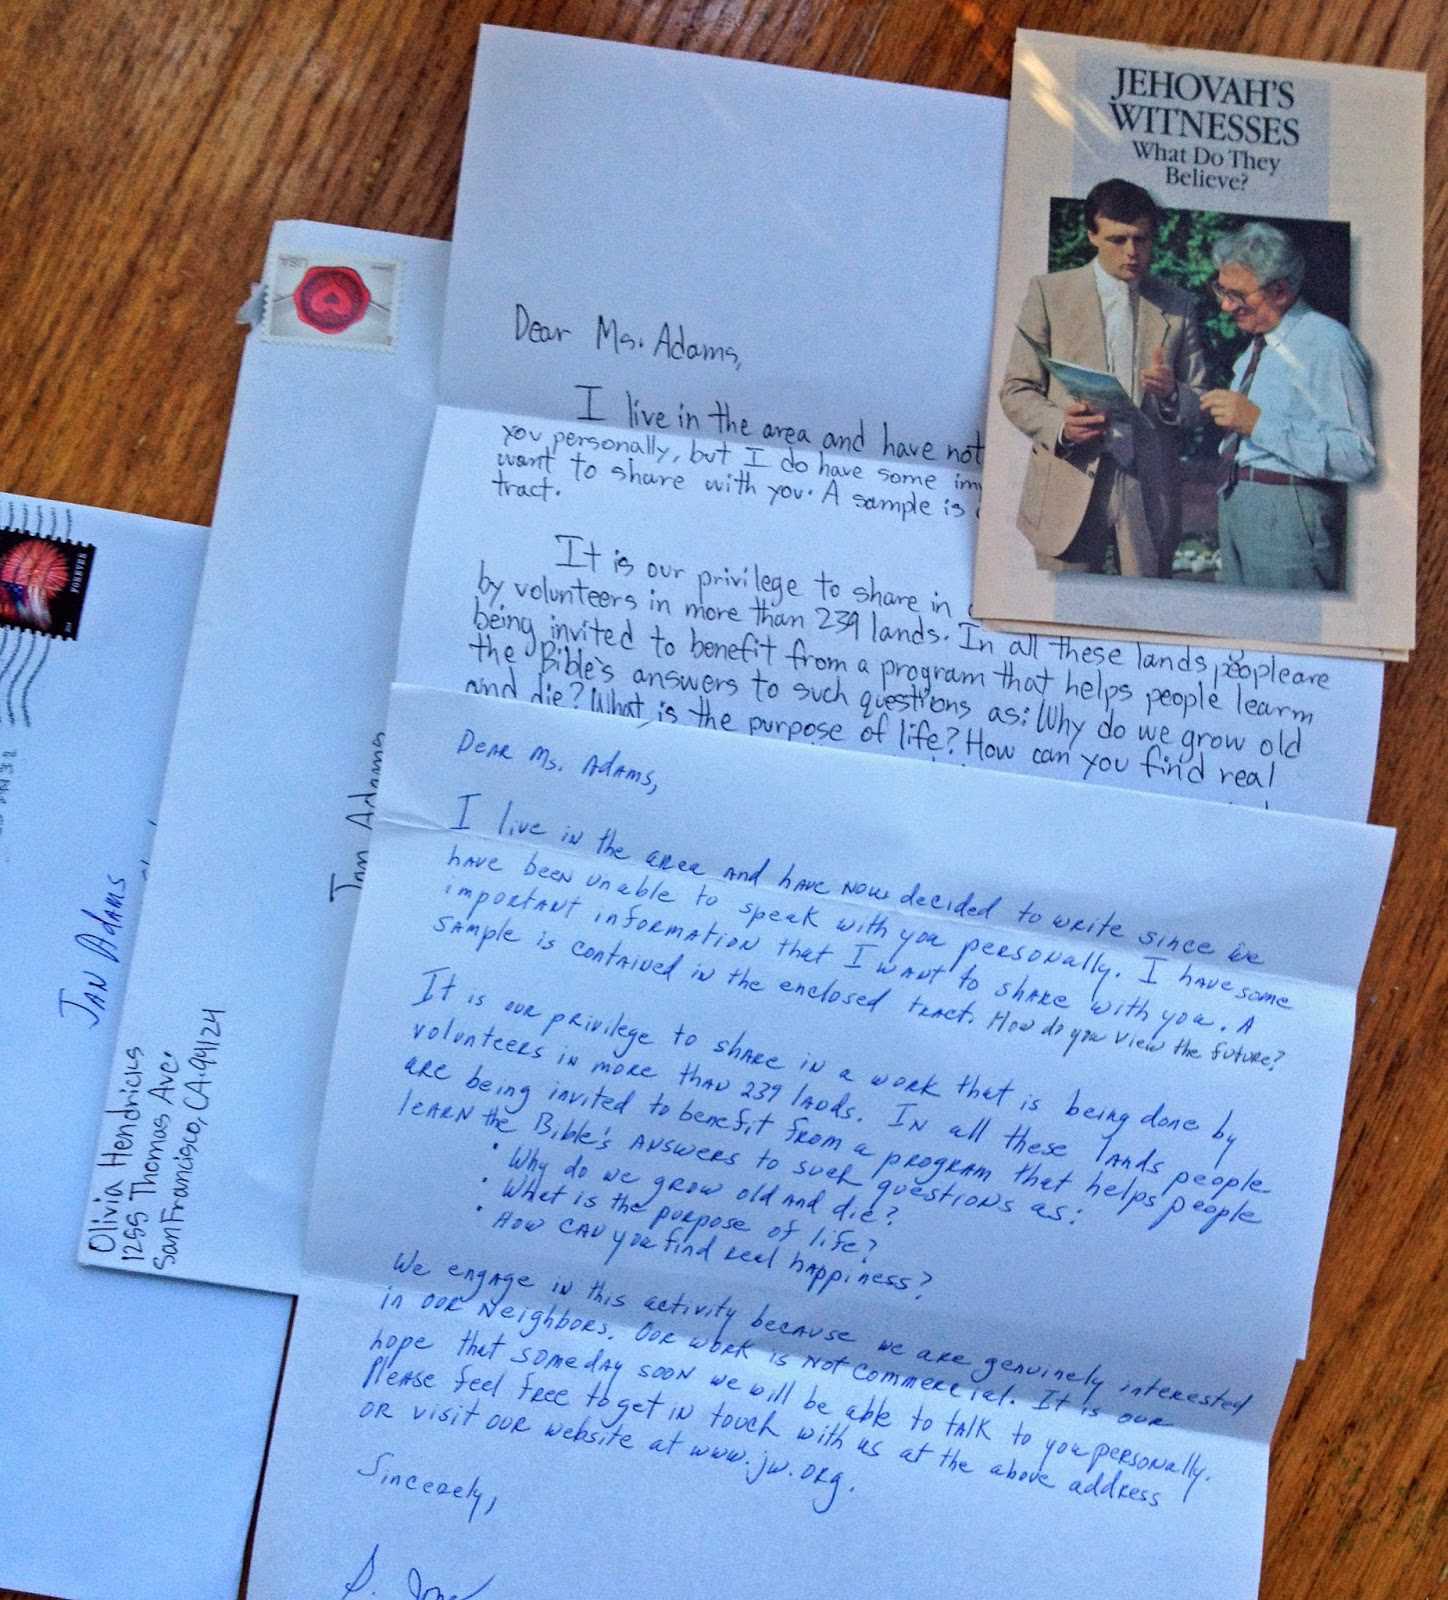 JEHOVAH'S
WITNESSES
What Do They
Believe?
USA
FOREVER
Dear Ms. Adams,
I live in the area and have not
you personally, but I do have some
want to share with you. A sample is
tract.
It is our privilege to share in
by volunteers in more than 239 lands. In all these lands people are
being invited to benefit from a program that helps people learm
the Bible's answers to such questions as: Why do we grow old
and die? What is the purpose of life? How can you find real
Dear Ms. Adams,
I live in the area and have now decided to write since we
have been unable to speak with you personally. I have some
important information that I want to share with you. A
sample is contained in the enclosed tract. How do you view the future?
It is our privilege to share in a work that is being done by
volunteers in more than 239 lands. In all these lands people
are being invited to benefit from a program that helps people
learn the Bible's answers to such questions as:
• Why do we grow old and die?
• What is the purpose of life?
• How can you find real happiness?
We engage in this activity because we are genuinely interested
in our neighbors. Our work is not commercial. It is our
hope that someday soon we will be able to talk to you personally.
Please feel free to get in touch with us at the above address
or visit our website at www.jw.org.
Sincerely,
Jan Adams
Olivia Hendricks
1255 Thomas Ave.
San Francisco, CA. 94124
Jan Adams